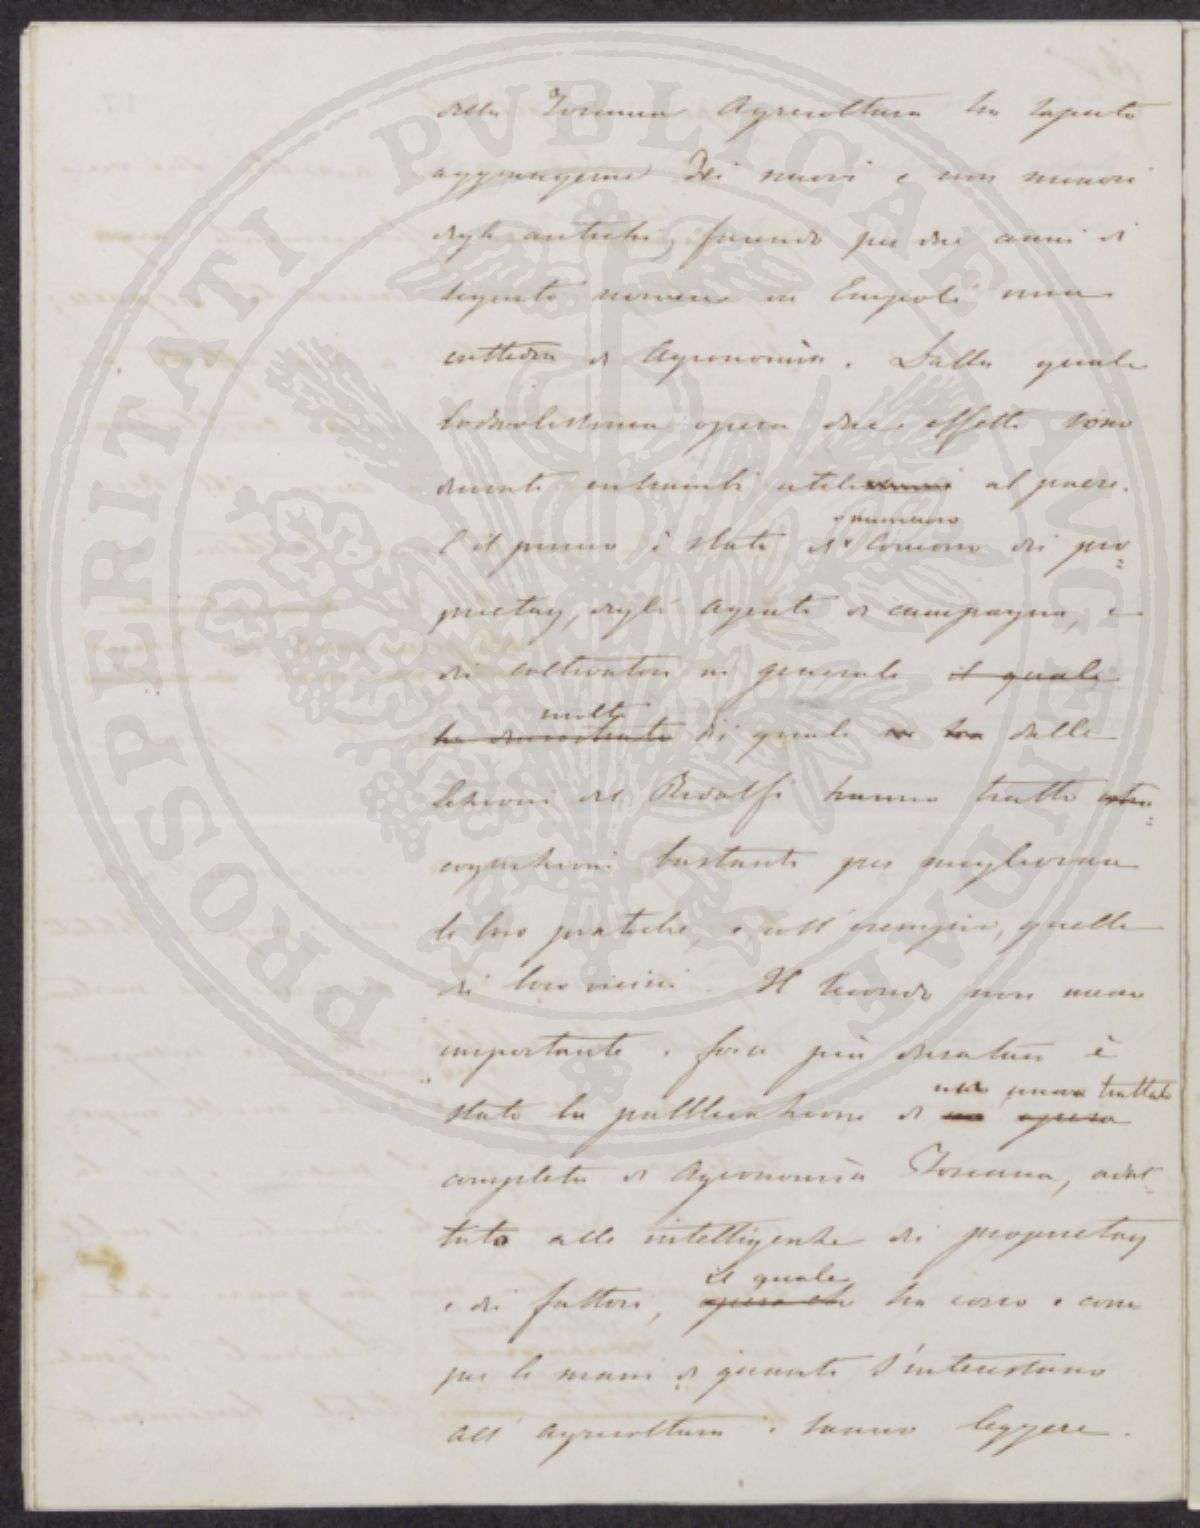 della Toscana Agricoltura ha saputo
aggiungerne dei nuovi e non minori
degli antichi, facendo per due anni di
seguito in Empoli una
cattedra di Agronomia. Dalla quale
lodevolissima opera due effetti sono
derivati entrambi utilissimi al paese.
numeroso
E il primo è stato il concorso dei pro=
prietarj, degli Agenti di campagna, e
dei coltivatori in generale il quale
molti
ha dimostrato dei quali dalle
lezioni del Ridolfi hanno tratto
cognizioni bastanti per migliorare
le loro pratiche, e, coll'esempio, quelle
dei loro vicini. Il secondo non meno
importante e forse più duraturo è
nuovo trattato
stato la pubblicazione di una opera
completo di Agronomia Toscana, adat=
tato alle intelligenze dei proprietarj
il quale
e dei fattori, opera che ha corso e corre
per le mani di quanti s'interessano
all'agricoltura e sanno leggere.
PROSPERITATI PUBLICAE AUGENDAE